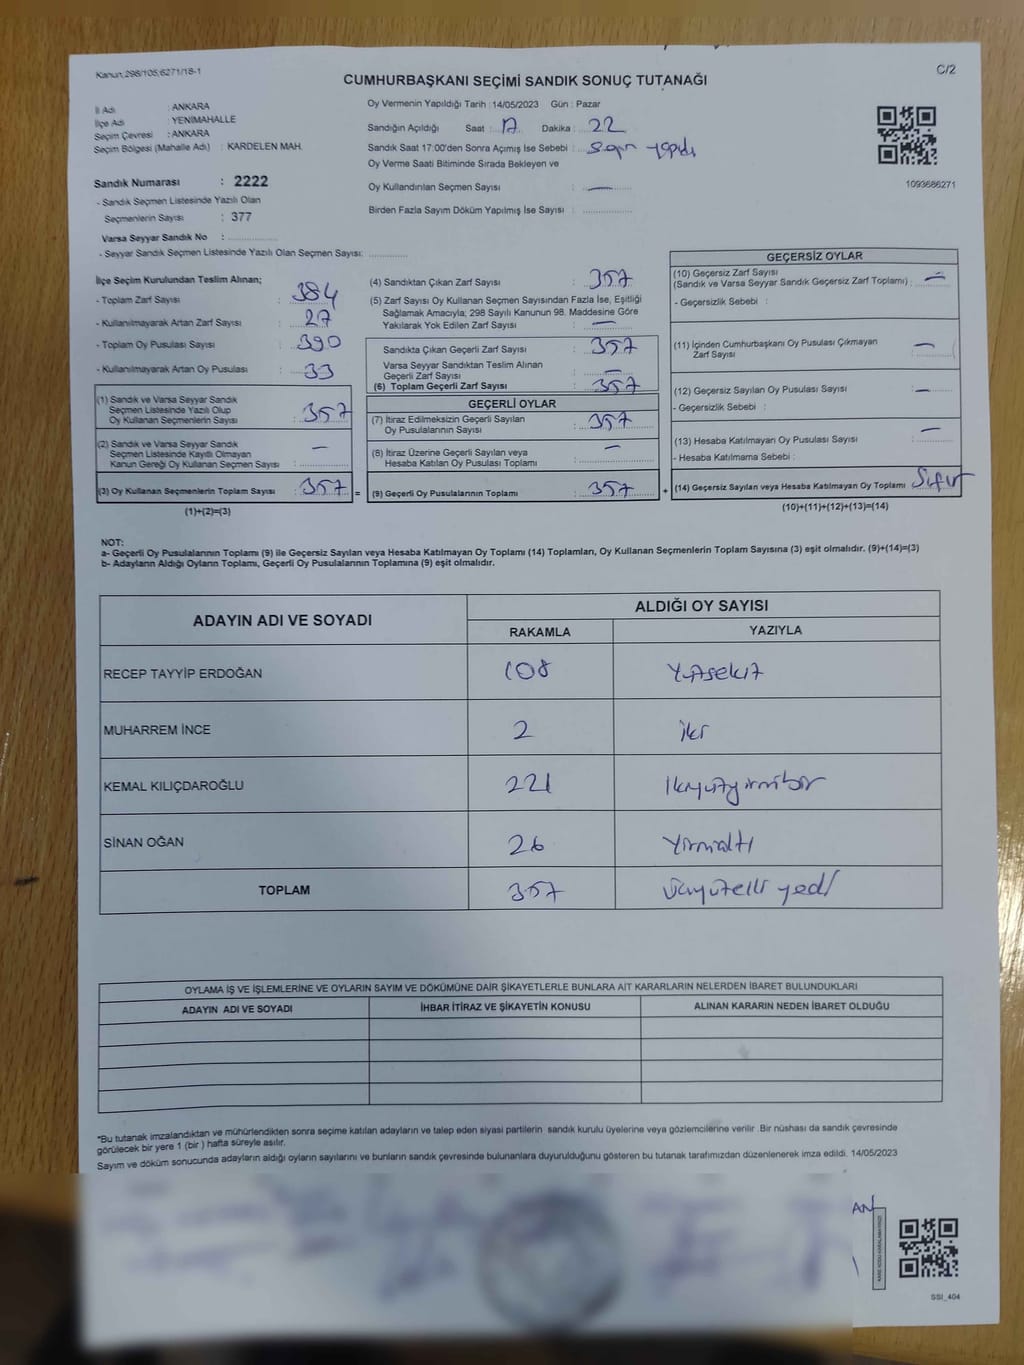 Kanun:298/105;6271/18-1
C/2
CUMHURBAŞKANI SEÇİMİ SANDIK SONUÇ TUTANAĞI
İl Adı : ANKARA
İlçe Adı : YENİMAHALLE
Seçim Çevresi : ANKARA
Seçim Bölgesi (Mahalle Adı) : KARDELEN MAH.
Sandık Numarası : 2222
- Sandık Seçmen Listesinde Yazılı Olan
Seçmenlerin Sayısı : 377
Varsa Seyyar Sandık No :
- Seyyar Sandık Seçmen Listesinde Yazılı Olan Seçmen Sayısı:
Oy Vermenin Yapıldığı Tarih :14/05/2023 Gün : Pazar
Sandığın Açıldığı Saat : 17 Dakika : 22
Sandık Saat 17:00'den Sonra Açımış İse Sebebi : Sayım yapıldı
Oy Verme Saati Bitiminde Sırada Bekleyen ve
Oy Kullandırılan Seçmen Sayısı : —
Birden Fazla Sayım Döküm Yapılmış İse Sayısı :
1093686271
İlçe Seçim Kurulundan Teslim Alınan;
- Toplam Zarf Sayısı : 384
- Kullanılmayarak Artan Zarf Sayısı : 27
- Toplam Oy Pusulası Sayısı : 390
- Kullanılmayarak Artan Oy Pusulası : 33
(1) Sandık ve Varsa Seyyar Sandık
Seçmen Listesinde Yazılı Olup
Oy Kullanan Seçmenlerin Sayısı : 357
(2) Sandık ve Varsa Seyyar Sandık
Seçmen Listesinde Kayıtlı Olmayan
Kanun Gereği Oy Kullanan Seçmen Sayısı : —
(3) Oy Kullanan Seçmenlerin Toplam Sayısı : 357 =
(1)+(2)=(3)
(4) Sandıktan Çıkan Zarf Sayısı : 357
(5) Zarf Sayısı Oy Kullanan Seçmen Sayısından Fazla İse, Eşitliği
Sağlamak Amacıyla; 298 Sayılı Kanunun 98. Maddesine Göre
Yakılarak Yok Edilen Zarf Sayısı : —
Sandıkta Çıkan Geçerli Zarf Sayısı : 357
Varsa Seyyar Sandıktan Teslim Alınan
Geçerli Zarf Sayısı : —
(6) Toplam Geçerli Zarf Sayısı : 357
GEÇERLİ OYLAR
(7) İtiraz Edilmeksizin Geçerli Sayılan
Oy Pusulalarının Sayısı : 357
(8) İtiraz Üzerine Geçerli Sayılan veya
Hesaba Katılan Oy Pusulası Toplamı : —
(9) Geçerli Oy Pusulalarının Toplamı : 357 +
GEÇERSİZ OYLAR
(10) Geçersiz Zarf Sayısı
(Sandık ve Varsa Seyyar Sandık Geçersiz Zarf Toplamı) : —
- Geçersizlik Sebebi :
(11) İçinden Cumhurbaşkanı Oy Pusulası Çıkmayan
Zarf Sayısı : —
(12) Geçersiz Sayılan Oy Pusulası Sayısı : —
- Geçersizlik Sebebi :
(13) Hesaba Katılmayan Oy Pusulası Sayısı : —
- Hesaba Katılmama Sebebi :
(14) Geçersiz Sayılan veya Hesaba Katılmayan Oy Toplamı : Sıfır
(10)+(11)+(12)+(13)=(14)
NOT:
a- Geçerli Oy Pusulalarının Toplamı (9) ile Geçersiz Sayılan veya Hesaba Katılmayan Oy Toplamı (14) Toplamları, Oy Kullanan Seçmenlerin Toplam Sayısına (3) eşit olmalıdır. (9)+(14)=(3)
b- Adayların Aldığı Oyların Toplamı, Geçerli Oy Pusulalarının Toplamına (9) eşit olmalıdır.
ADAYIN ADI VE SOYADI ALDIĞI OY SAYISI
RAKAMLA YAZIYLA
RECEP TAYYİP ERDOĞAN 108 Yüzsekiz
MUHARREM İNCE 2 iki
KEMAL KILIÇDAROĞLU 221 İkiyüzyirmibir
SİNAN OĞAN 26 Yirmialtı
TOPLAM 357 Üçyüzelli yedi
OYLAMA İŞ VE İŞLEMLERİNE VE OYLARIN SAYIM VE DÖKÜMÜNE DAİR ŞİKAYETLERLE BUNLARA AİT KARARLARIN NELERDEN İBARET BULUNDUKLARI
ADAYIN ADI VE SOYADI İHBAR İTİRAZ VE ŞİKAYETİN KONUSU ALINAN KARARIN NEDEN İBARET OLDUĞU
*Bu tutanak imzalandıktan ve mühürlendikten sonra seçime katılan adayların ve talep eden siyasi partilerin sandık kurulu üyelerine veya gözlemcilerine verilir .Bir nüshası da sandık çevresinde
görülecek bir yere 1 (bir ) hafta süreyle asılır.
Sayım ve döküm sonucunda adayların aldığı oyların sayılarını ve bunların sandık çevresinde bulunanlara duyurulduğunu gösteren bu tutanak tarafımızdan düzenlenerek imza edildi. 14/05/2023
AN
KARE KODU KARALAMAYINIZ!
SSI_404